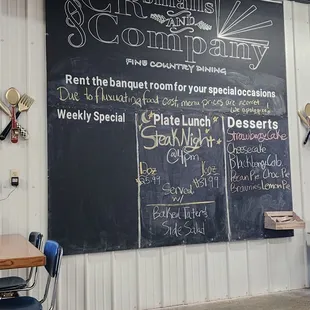 AND
Company
FINE COUNTRY DINING
Rent the banquet room for your special occasions
Due to fluxuating food cost, menu prices are
Weekly Special
Plate Lunch
Steak Night
Served
w/
Baked Tater &
Side Salad
Desserts
Strawberry Cake
Cheesecake
Blackberry Cob
Pecan Pie Choc Pie
Brownies Lemon Pie